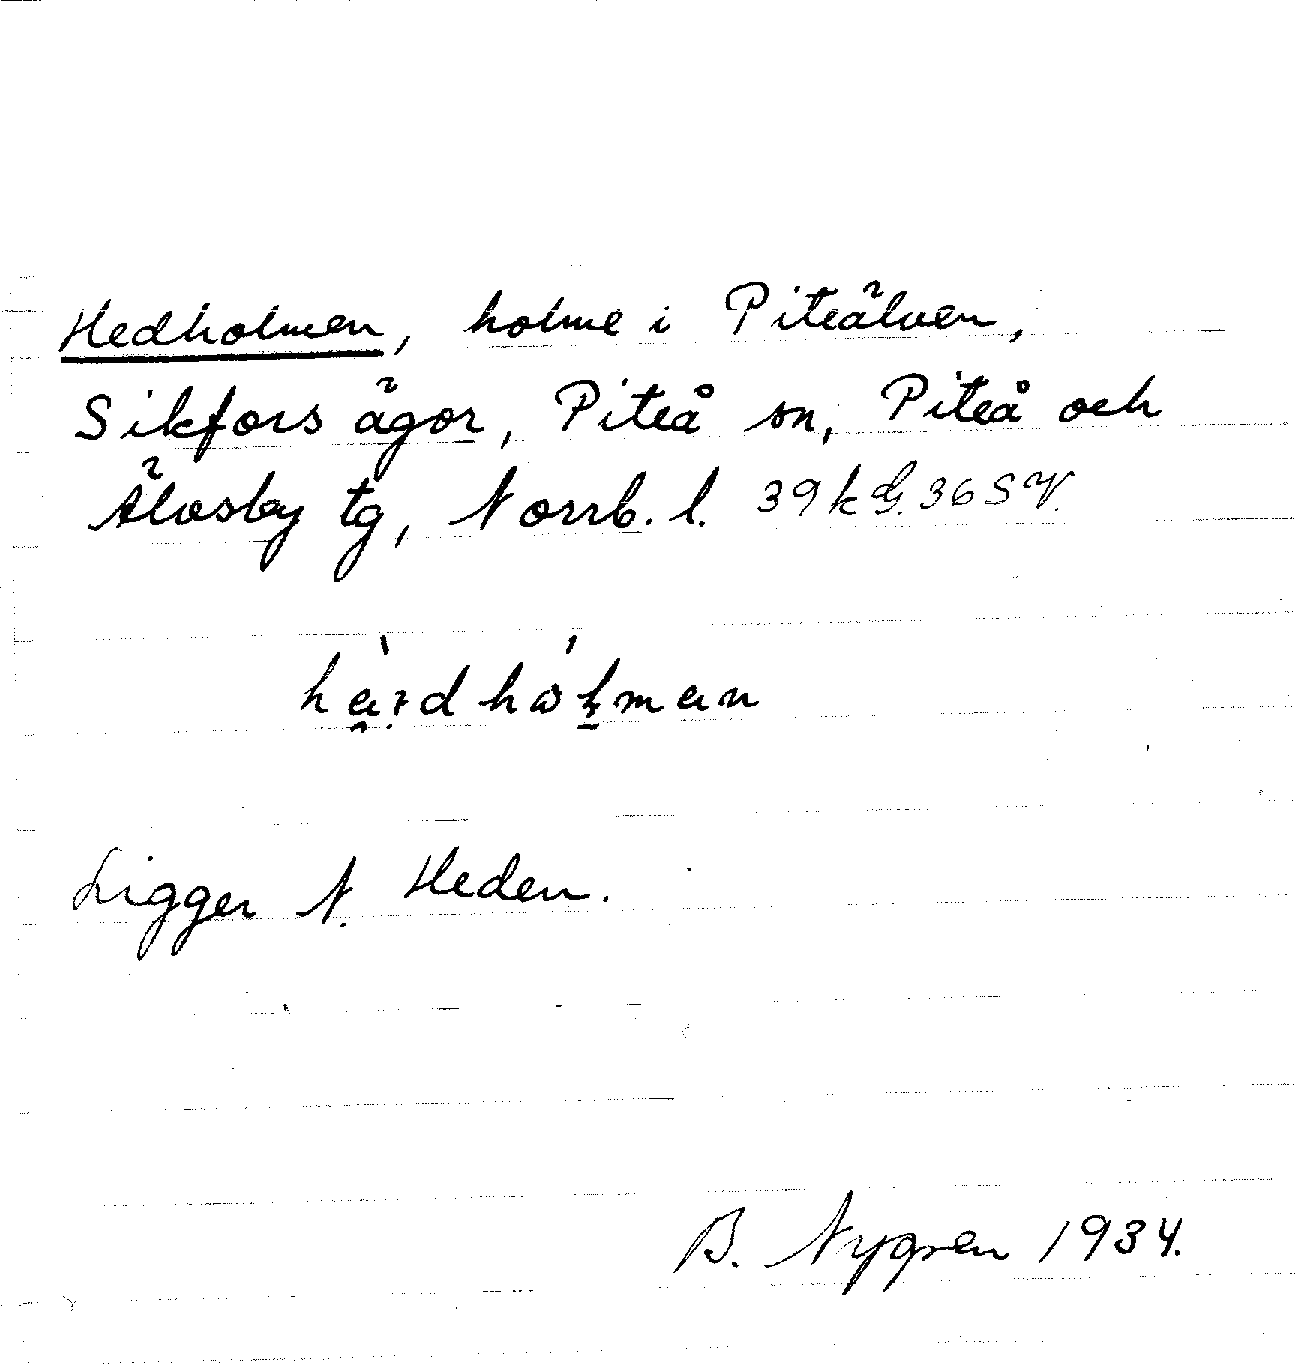 Hedholmen, holme i Piteälven,
Sikfors ägor, Piteå sn, Piteå och
Älvsby tg, Norrb. l. 39 k G. 36 SV.
Ligger N. Heden.
B. Nygren 1934.